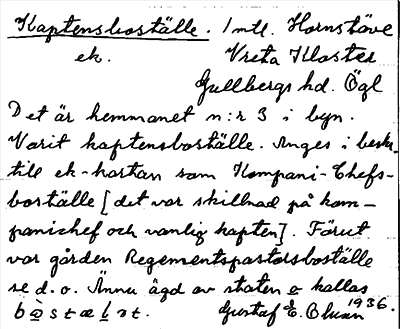 Kaptensboställe. Intl. Hornstäve
ek. Vreta Kloster
Gullbergs hd. Ögl
Det är hemmanet n:r 3 i byn.
Varit kaptensboställe. Anges i beskr.
till ek-kartan som Kompani-Chefs-
boställe [det var skillnad på kom-
panichef och vanlig kapten]. Förut
var gården Regementspastorsboställe
se d. o. Ännu ägd av staten o kallas
1936.
Gustaf E.